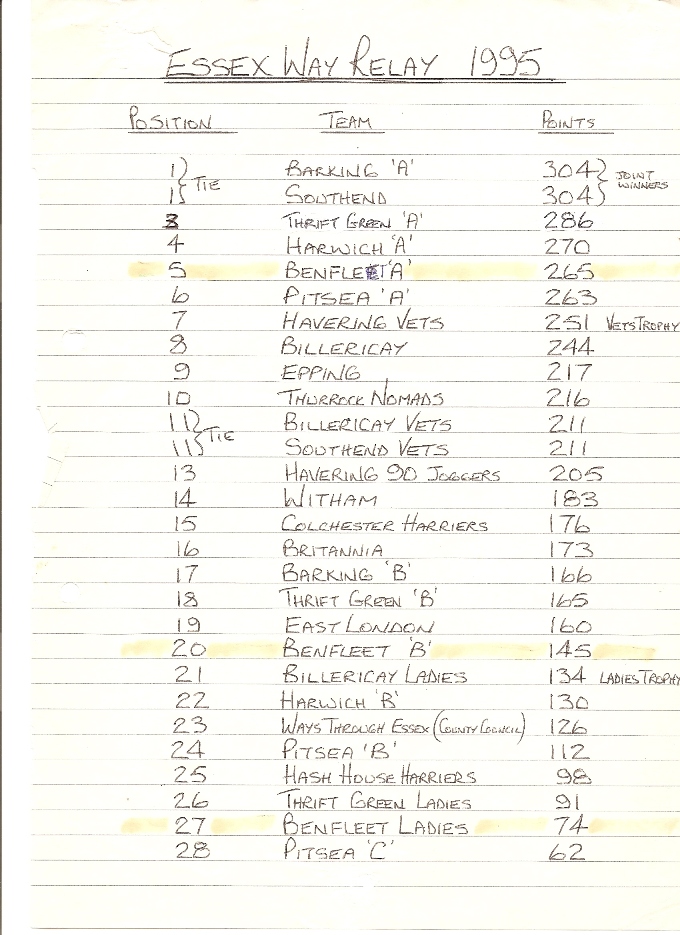 ESSEX WAY RELAY 1995
POSITION TEAM POINTS
1 TIE BARKING 'A' 304 JOINT WINNERS
1 SOUTHEND 304
3 THRIFT GREEN 'A' 286
4 HARWICH 'A' 270
5 BENFLEET 'A' 265
6 PITSEA 'A' 263
7 HAVERING VETS 251 VETS TROPHY
8 BILLERICAY 244
9 EPPING 217
10 THURROCK NOMADS 216
11 TIE BILLERICAY VETS 211
11 SOUTHEND VETS 211
13 HAVERING 90 JOGGERS 205
14 WITHAM 183
15 COLCHESTER HARRIERS 176
16 BRITANNIA 173
17 BARKING 'B' 166
18 THRIFT GREEN 'B' 165
19 EAST LONDON 160
20 BENFLEET 'B' 145
21 BILLERICAY LADIES 134 LADIES TROPHY
22 HARWICH 'B' 130
23 WAYS THROUGH ESSEX (COUNTY COUNCIL) 126
24 PITSEA 'B' 112
25 HASH HOUSE HARRIERS 98
26 THRIFT GREEN LADIES 91
27 BENFLEET LADIES 74
28 PITSEA 'C' 62